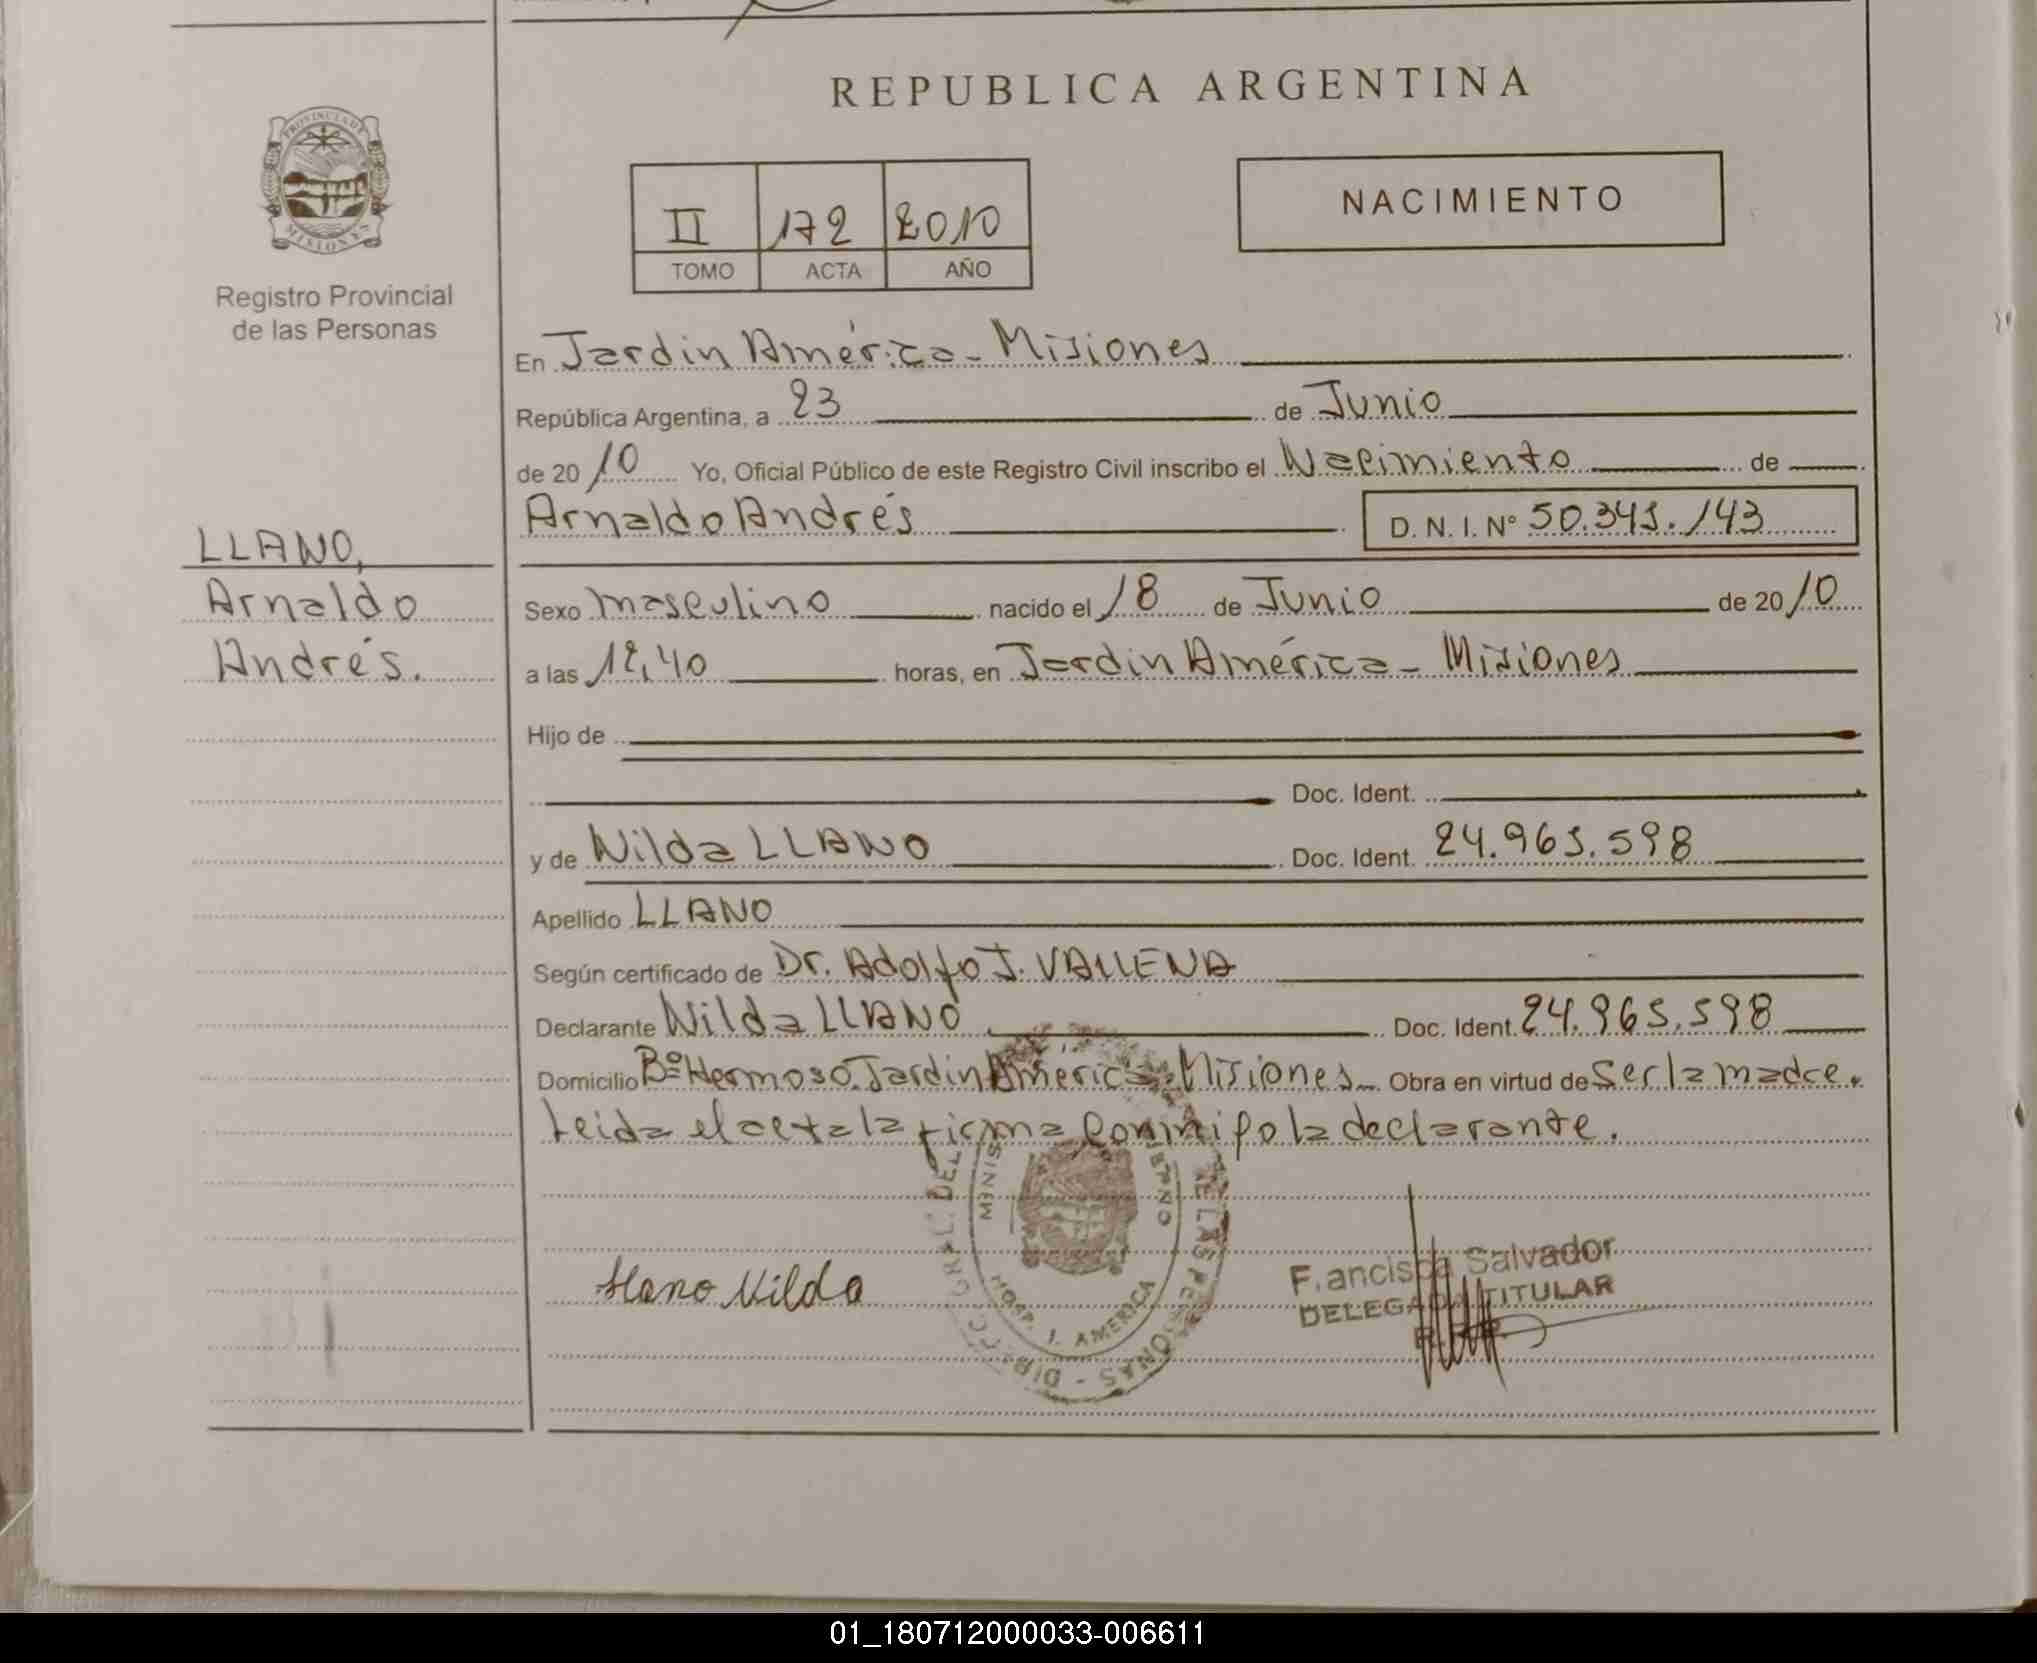 REPUBLICA ARGENTINA
PROVINCIA DE
MISIONES
Registro Provincial
de las Personas
II 172 2010
TOMO ACTA AÑO
NACIMIENTO
En Jardín América - Misiones
República Argentina, a 23 de Junio
de 2010 Yo, Oficial Público de este Registro Civil inscribo el Nacimiento de
Arnaldo Andrés D. N. I. N° 50.341.143
LLANO,
Arnaldo
Andrés.
Sexo masculino nacido el 18 de Junio de 2010
a las 12,40 horas, en Jardín América - Misiones
Hijo de
Doc. Ident.
y de Nilda LLANO Doc. Ident. 24.965.598
Apellido LLANO
Según certificado de Dr. Adolfo J. VALLENA
Declarante Nilda LLANO Doc. Ident. 24.965.598
Domicilio Bº Hermoso. Jardín América - Misiones Obra en virtud de ser la madre.
Leida el acta la firma conmigo la declarante.
HOSP. J. AMERICA
Llano Nilda
Francisca Salvador
DELEGADA TITULAR
01_180712000033-006611